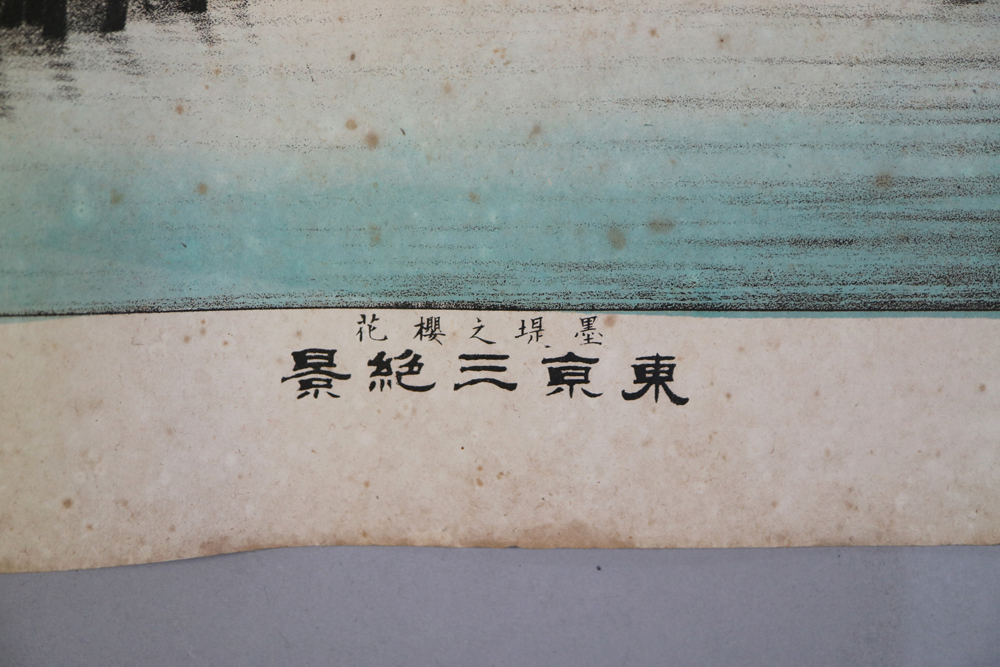 墨堤之櫻花
東亰三絶景